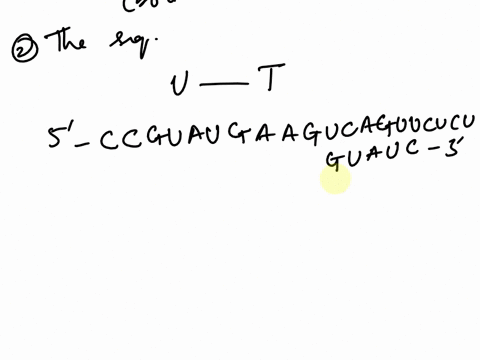 (2) The sq.
U — T
5' - CCGUAUGAAGUCAGUUCUCU
GUAUC - 3'